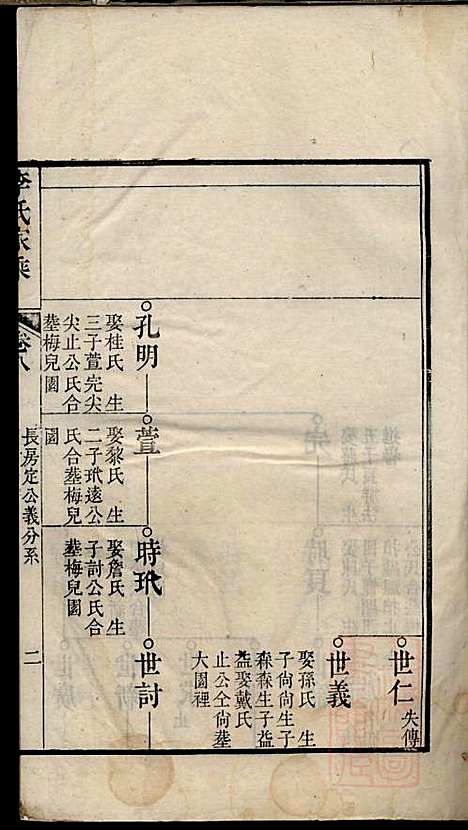 世仁
失傳
世義
娶孫氏 生
子尙尙生子
森森生子益
益娶戴氏
止公仝尙葬
大園裡
孔明
娶桂氏 生
三子萱完尖
尖止公氏合
葬梅兒園
萱
娶黎氏 生
二子玳遠公
氏合葬梅兒
園
時玳
娶詹氏 生
子討公氏合
葬梅兒園
世討
李氏家乘
卷八
長房定公義分系
二